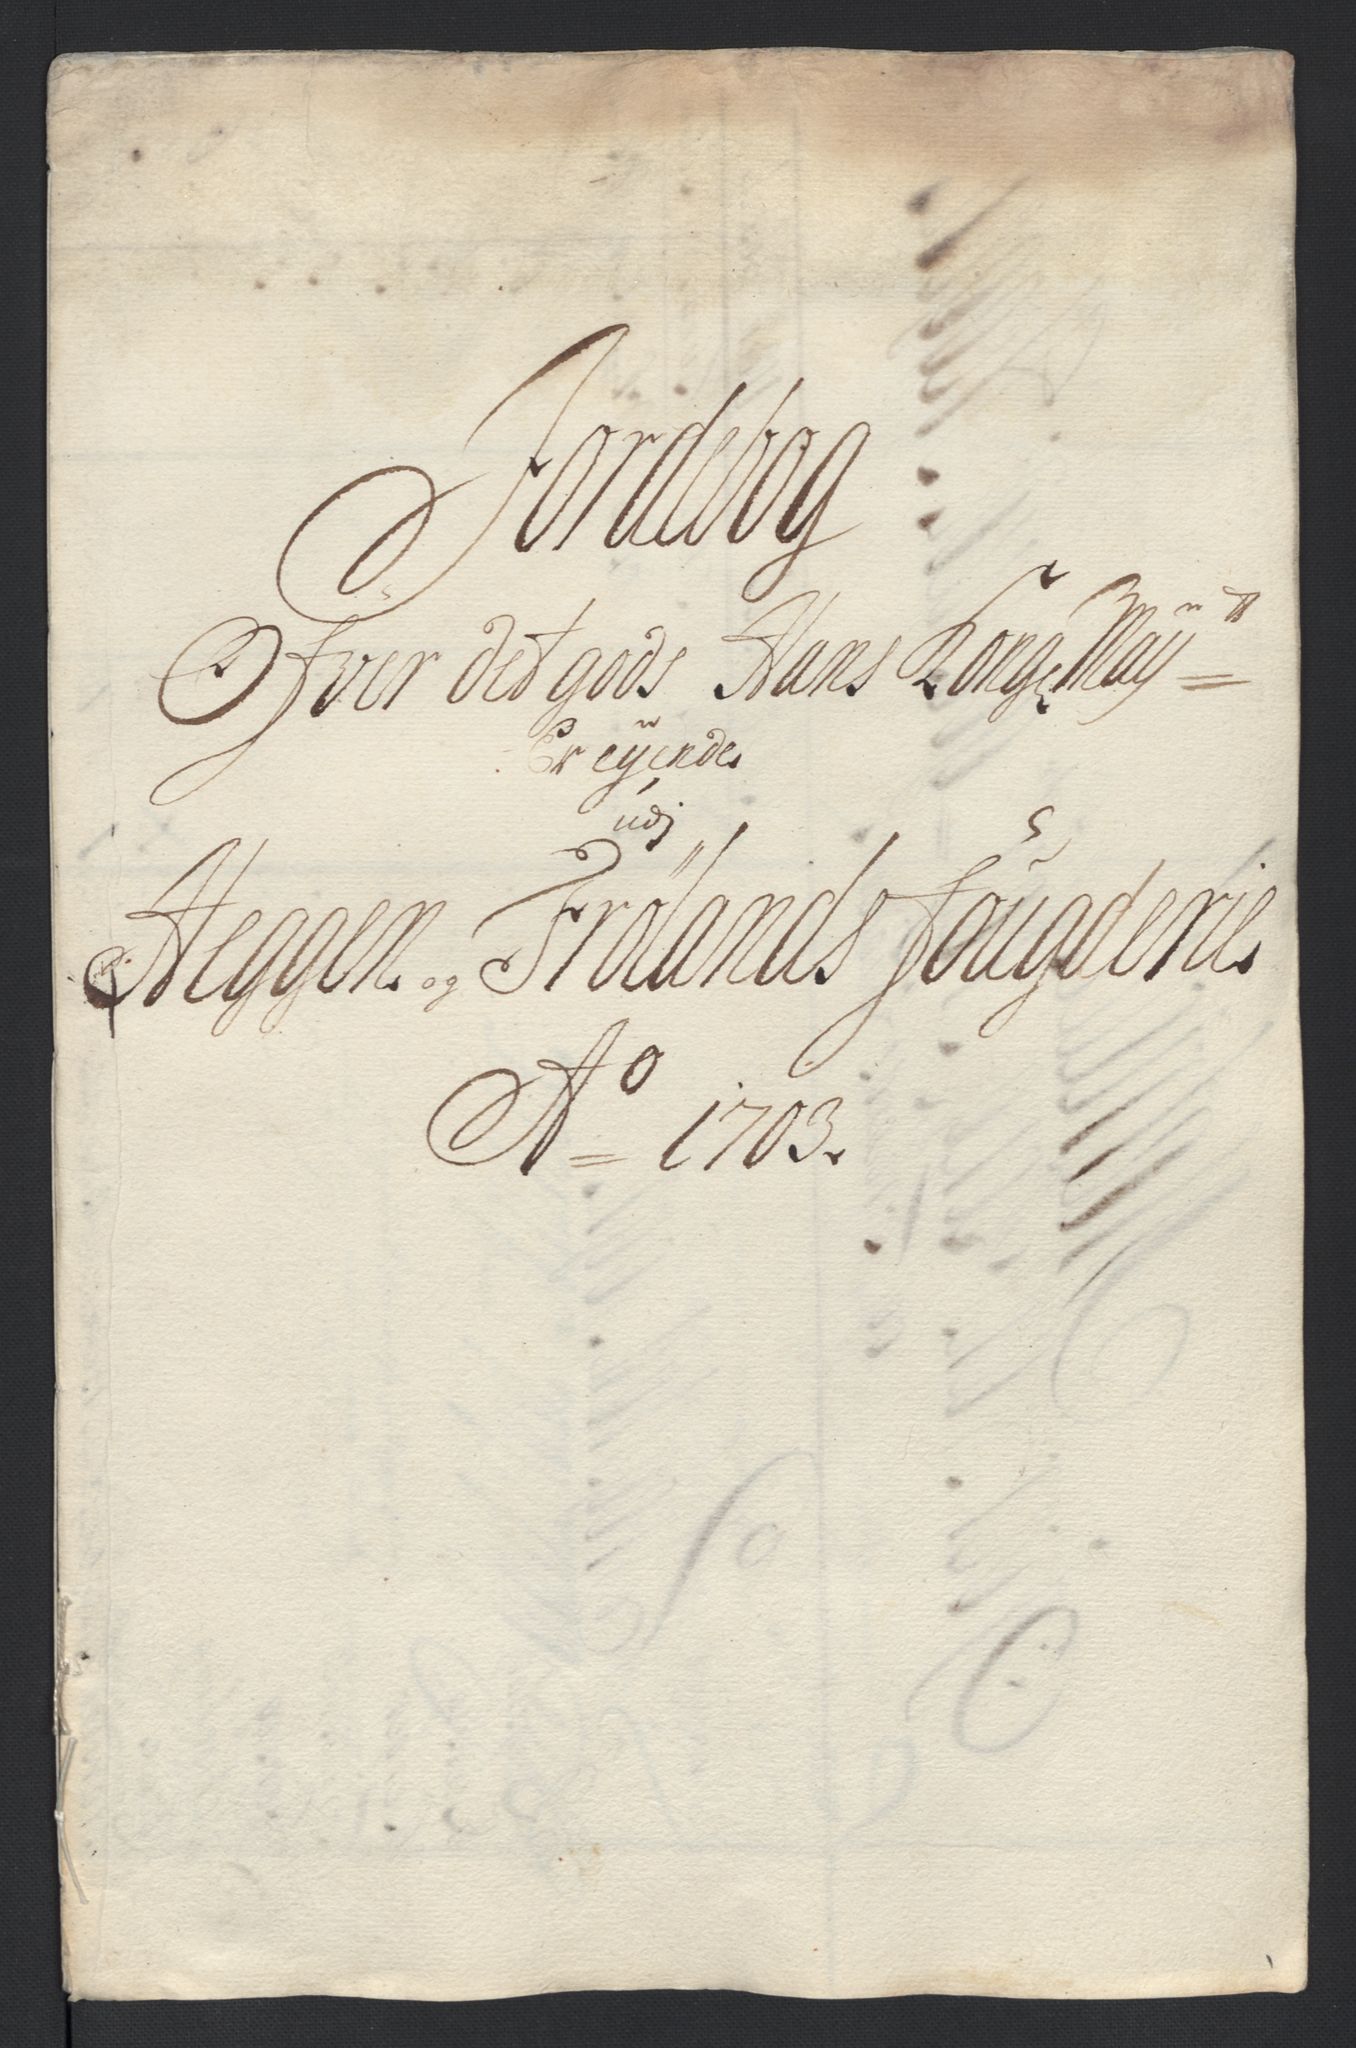 Jordebog
Ofver det gods Hans Kong: Maÿtt
Er eÿende
udj
Heggen og Frölands fougderie
Ao 1703.